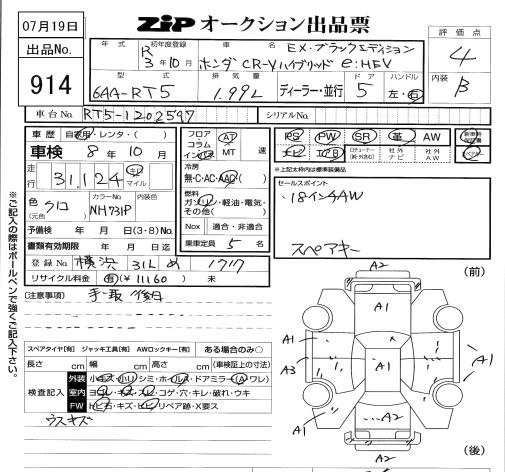 07月19日
ZIP オークション出品票
出品No.
914
年式 初年度登録 車名
R 3年10月 ホンダ CR-Vハイブリッド e:HEV
EX・ブラックエディション
評価点
4
型式 排気量 ドア ハンドル
6AA-RT5 1.99L ディーラー・並行 5 左・右
内装
B
車台No. RT5-1202597
シリアルNo.
車歴 自家用・レンタ・( )
車検 8年10月
走行 31,124 キロ マイル
色 クロ (元色) カラーNo. NH731P
予備検 年 月 日(3・8)No.
書類有効期限 年 月 日迄
登録No. 横浜 31L め 1717
リサイクル料金 有(¥11160) 未
フロア
コラム
インパネ
AT
MT 速
冷房
無・C・AC・AAC( )
燃料
ガソリン・軽油・電気・
その他( )
Nox 適合・非適合
乗車定員 5 名
PS PW SR 革 AW 新車時保証書
ナビ エアB 社外ナビ 社外AW
※上記太枠内は標準装備品
セールスポイント
・18インチAW
スペアキー
※ご記入の際はボールペンで強くご記入下さい。
[注意事項]
スペアタイヤ[有] ジャッキ工具[有] AWロックキー[有] ある場合のみ○
長さ cm 幅 cm 高さ cm (車検証上の寸法)
検査記入
外装 小キズ・小凹・シミ・ホイール・ドアミラー(A)ワレ)
室内 ヨゴレ・キズ・スレ・コゲ・穴・キレ・破れ・ウキ
FW トビ石・キズ・ヒビ・リペア跡・X要ス
ウスキズ
(前)
A2
A1
A1
A1
A3
A1
A1
A1
A2
A1
A2
(後)